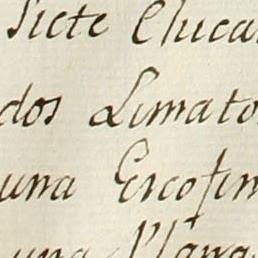 Siete Chica
dos Limato
una Escofin
una Plana